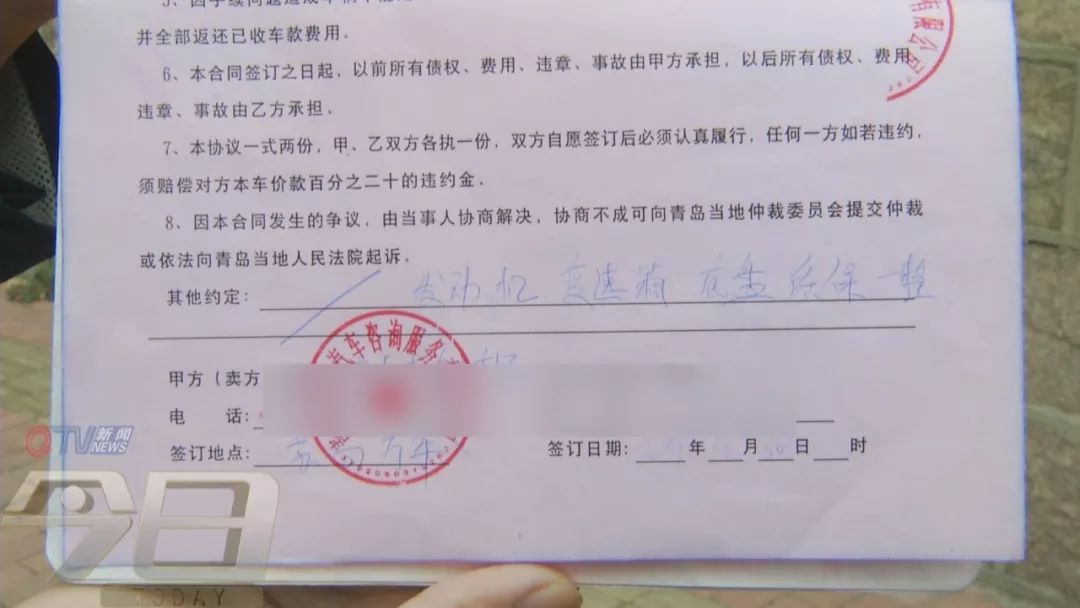 并全部返还已收车款费用.
6、本合同签订之日起，以前所有债权、费用、违章、事故由甲方承担，以后所有债权、费用、
违章、事故由乙方承担.
7、本协议一式两份，甲、乙双方各执一份，双方自愿签订后必须认真履行，任何一方如若违约，
须赔偿对方本车价款百分之二十的违约金.
8、因本合同发生的争议，由当事人协商解决，协商不成可向青岛当地仲裁委员会提交仲裁
或依法向青岛当地人民法院起诉.
其他约定: 发动机 变速箱 底盘 质保一整
汽车咨询服务
甲方（卖方
电 话:
签订地点:
签订日期: 年 月 日 时
QTV新闻
NEWS
今日
TODAY